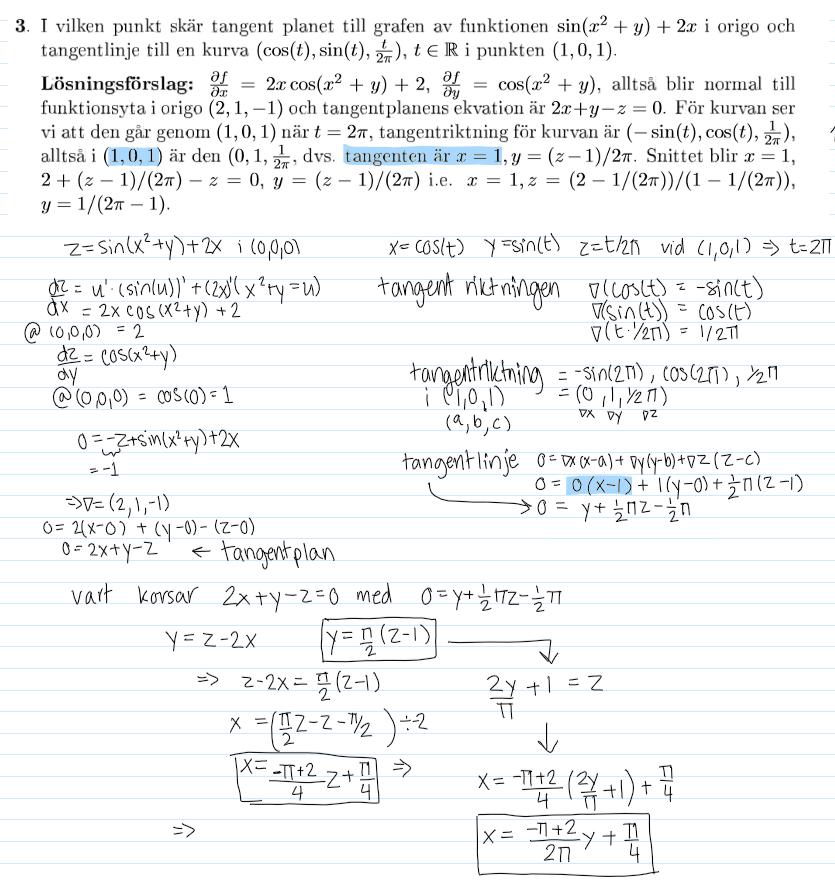 3. I vilken punkt skär tangent planet till grafen av funktionen sin(x² + y) + 2x i origo och
tangentlinje till en kurva (cos(t), sin(t), t/2π), t ∈ ℝ i punkten (1, 0, 1).
Lösningsförslag: ∂f/∂x = 2x cos(x² + y) + 2, ∂f/∂y = cos(x² + y), alltså blir normal till
funktionsyta i origo (2, 1, −1) och tangentplanens ekvation är 2x+y−z = 0. För kurvan ser
vi att den går genom (1, 0, 1) när t = 2π, tangentriktning för kurvan är (− sin(t), cos(t), 1/2π),
alltså i (1, 0, 1) är den (0, 1, 1/2π, dvs. tangenten är x = 1, y = (z−1)/2π. Snittet blir x = 1,
2 + (z − 1)/(2π) − z = 0, y = (z − 1)/(2π) i.e. x = 1, z = (2 − 1/(2π))/(1 − 1/(2π)),
y = 1/(2π − 1).
z = sin(x²+y)+2x i (0,0,0)
dz/dx = u'·(sin(u))' + (2x)' (x²+y = u)
= 2x cos(x²+y) + 2
@ (0,0,0) = 2
dz/dy = cos(x²+y)
@ (0,0,0) = cos(0) = 1
0 = -z+sin(x²+y)+2x
= -1
⇒ ∇ = (2, 1, -1)
0 = 2(x-0) + (y-0) - (z-0)
0 = 2x+y-z ← tangentplan
x = cos(t) y = sin(t) z = t/2π vid (1,0,1) ⇒ t = 2π
tangent riktningen ∇(cos(t) = -sin(t)
∇(sin(t)) = cos(t)
∇(t·1/2π) = 1/2π
tangentriktning = -sin(2π), cos(2π), 1/2π
i (1,0,1) = (0, 1, 1/2π)
(a,b,c) ∇x ∇y ∇z
tangentlinje 0 = ∇x(x-a) + ∇y(y-b) + ∇z(z-c)
0 = 0(x-1) + 1(y-0) + 1/2 π(z-1)
0 = y + 1/2 πz - 1/2 π
vart korsar 2x+y-z=0 med 0 = y + 1/2 πz - 1/2 π
y = z - 2x y = π/2 (z-1)
⇒ z-2x = π/2 (z-1)
x = (π/2 z - z - π/2) ÷ -2
x = -π+2/4 z + π/4 ⇒
⇒
2y/π + 1 = z
x = -π+2/4 (2y/π + 1) + π/4
x = -π+2/2π y + π/4